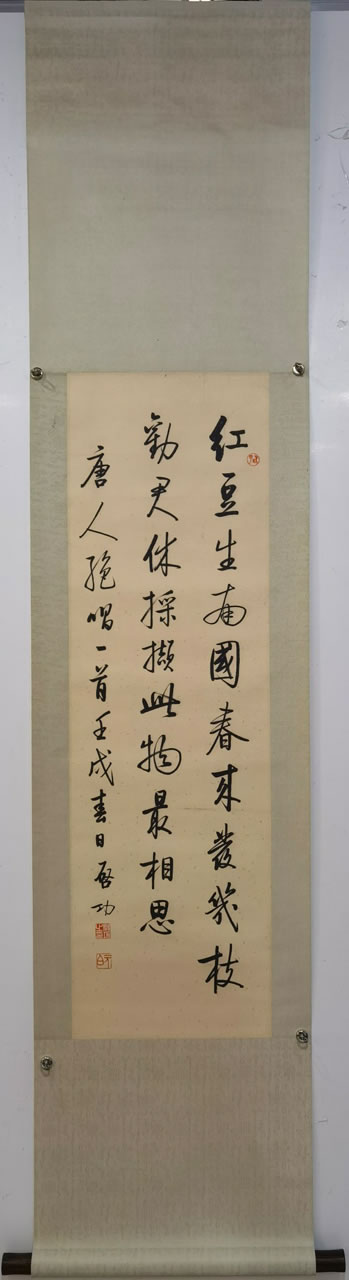 红豆生南國春来發幾枝
勸君休採擷此物最相思
唐人絶唱一首壬戌春日啓功